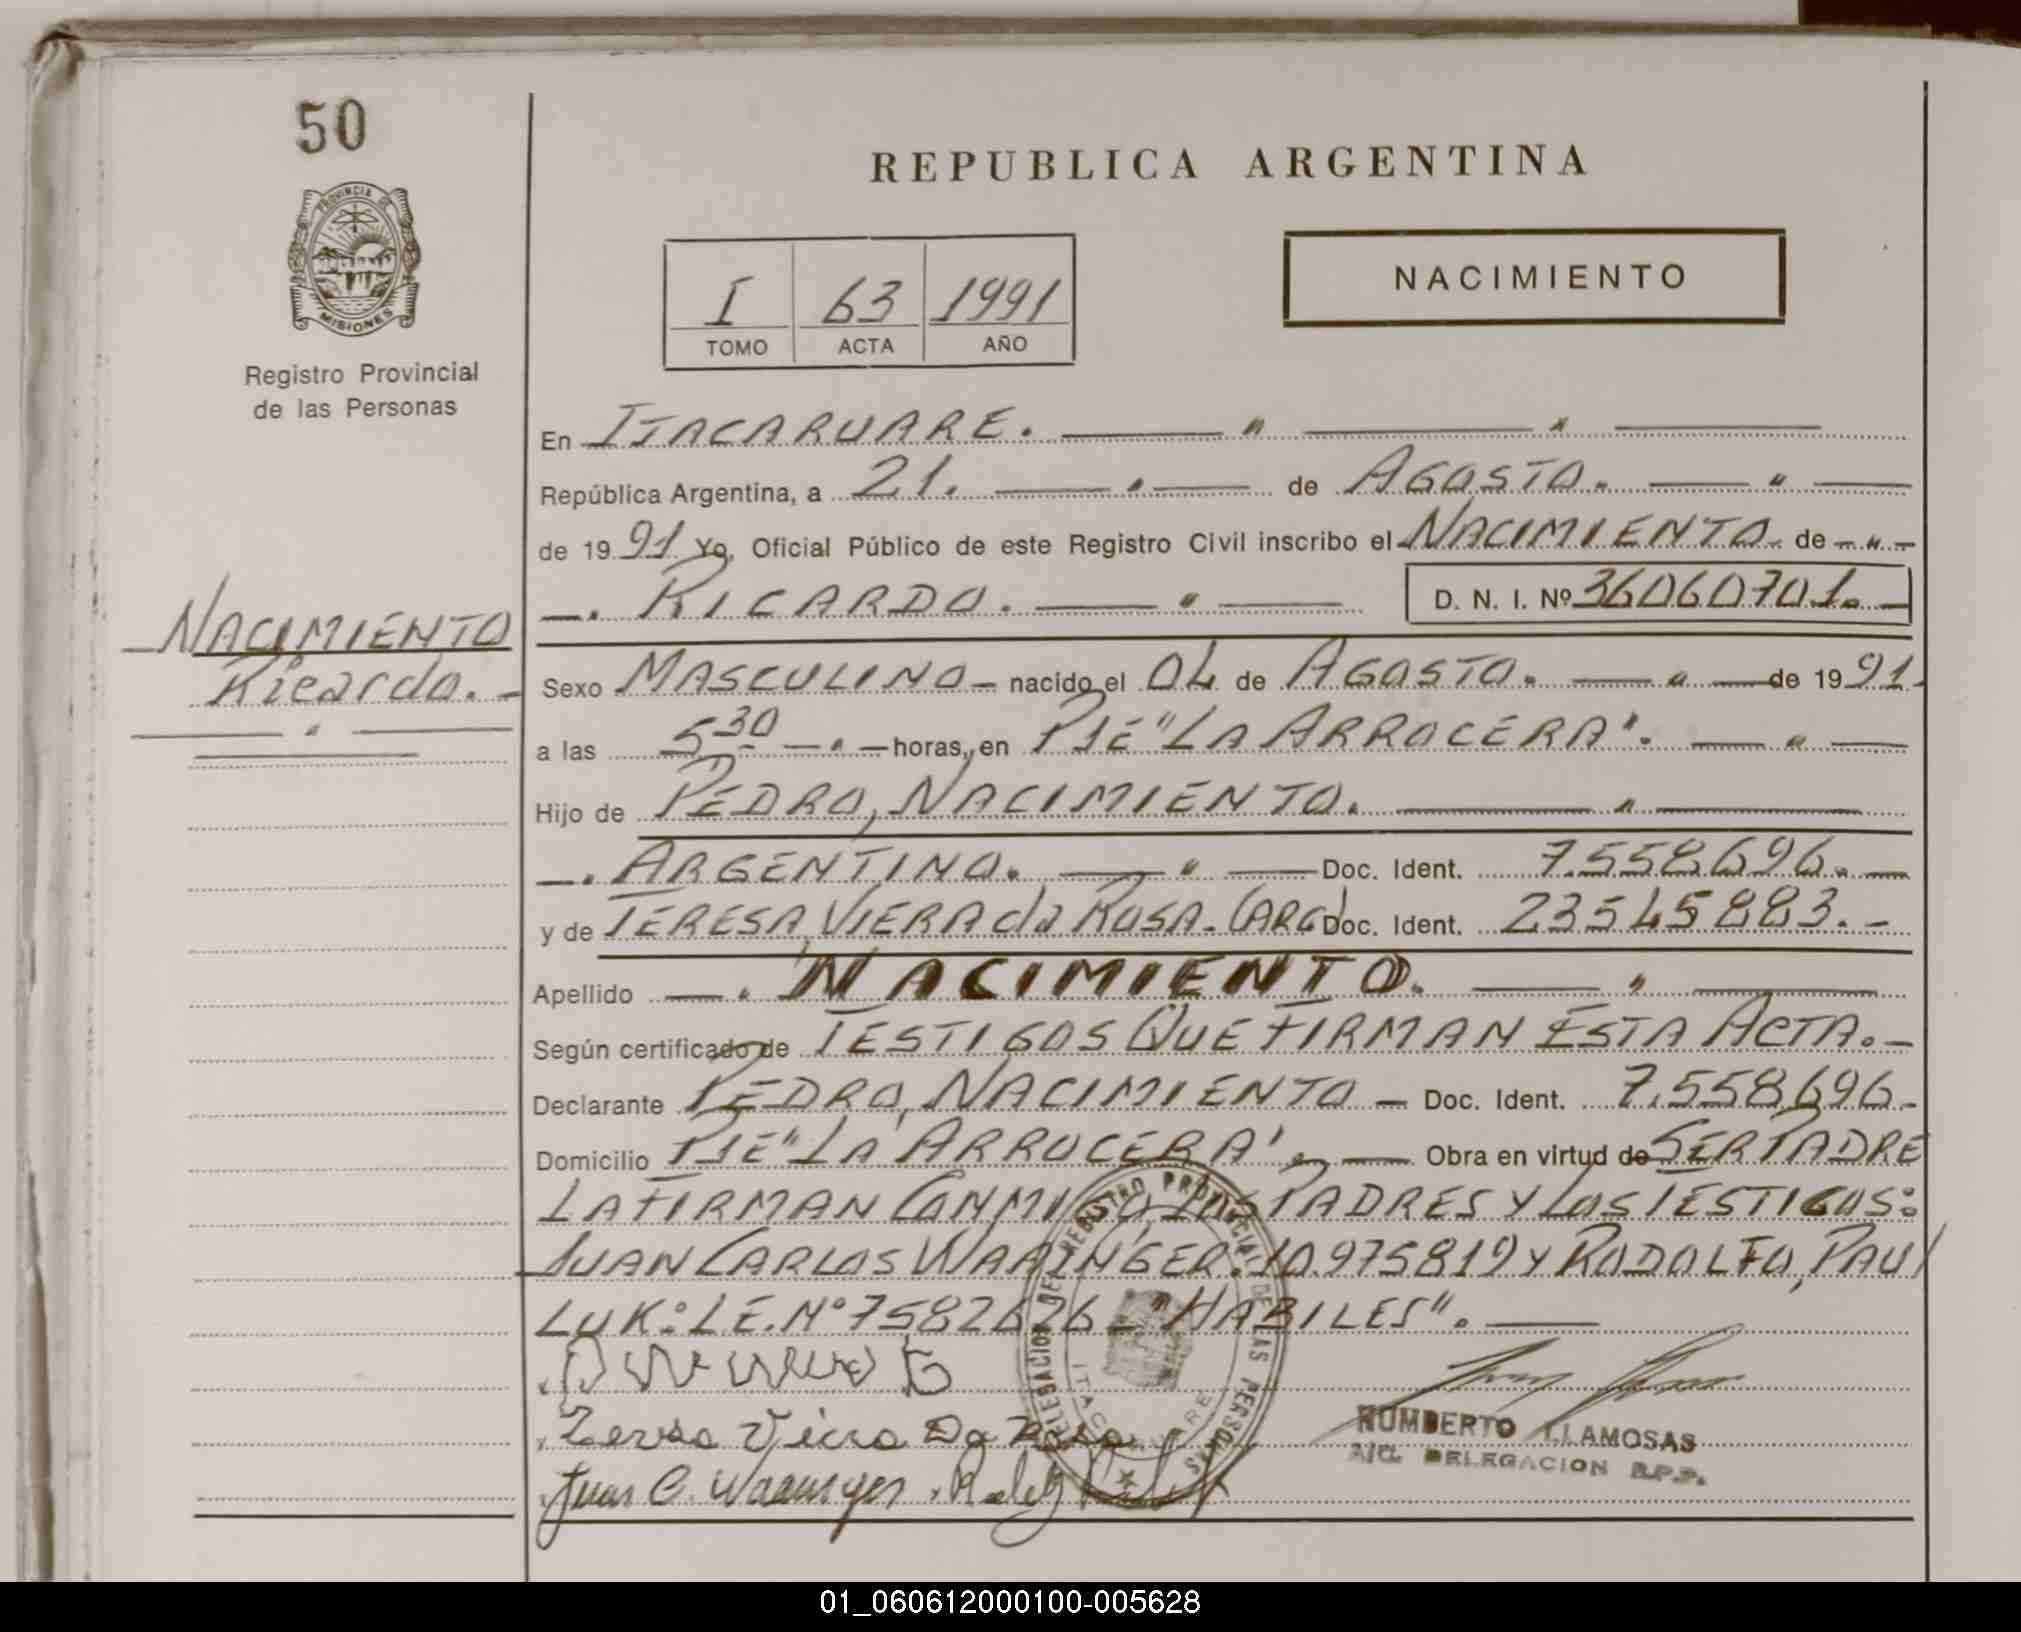 50
PROVINCIA DE
MISIONES
Registro Provincial
de las Personas
NACIMIENTO
Ricardo.-
REPUBLICA ARGENTINA
I 63 1991
TOMO ACTA AÑO
NACIMIENTO
En ITACARUARE. — " — " —
República Argentina, a 21. — " — de AGOSTO. — " —
de 1991 Yo, Oficial Público de este Registro Civil inscribo el NACIMIENTO de — " —
—. RICARDO. — " — D. N. I. Nº 36060701. —
Sexo MASCULINO — nacido el 04 de AGOSTO. — " — de 1991.
a las 5 30 — " — horas, en PJE "LA ARROCERA". — " —
Hijo de PEDRO, NACIMIENTO. — " —
—. ARGENTINO. — " — Doc. Ident. 7.558696. —
y de TERESA, VIERA da ROSA. (ARG) Doc. Ident. 23545883. —
Apellido — " NACIMIENTO. — " —
Según certificado de TESTIGOS QUE FIRMAN ESTA ACTA. —
Declarante PEDRO, NACIMIENTO — Doc. Ident. 7.558696 —
Domicilio PJE "LA ARROCERA". — Obra en virtud de SER PADRE
LA FIRMAN CONMIGO, LOS PADRES Y LOS TESTIGOS:
JUAN CARLOS WAAINGER: 10.975819 Y RODOLFO, PAUL
LUK: L.E. Nº 7582626 — "HABILES". —
Teresa Viera Da Rosa
Juan C.
DELEGACION DEL REGISTRO PROVINCIAL DE LAS PERSONAS
ITACARUARE
HUMBERTO LLAMOSAS
A/C. DELEGACION R.P.P.
01_060612000100-005628